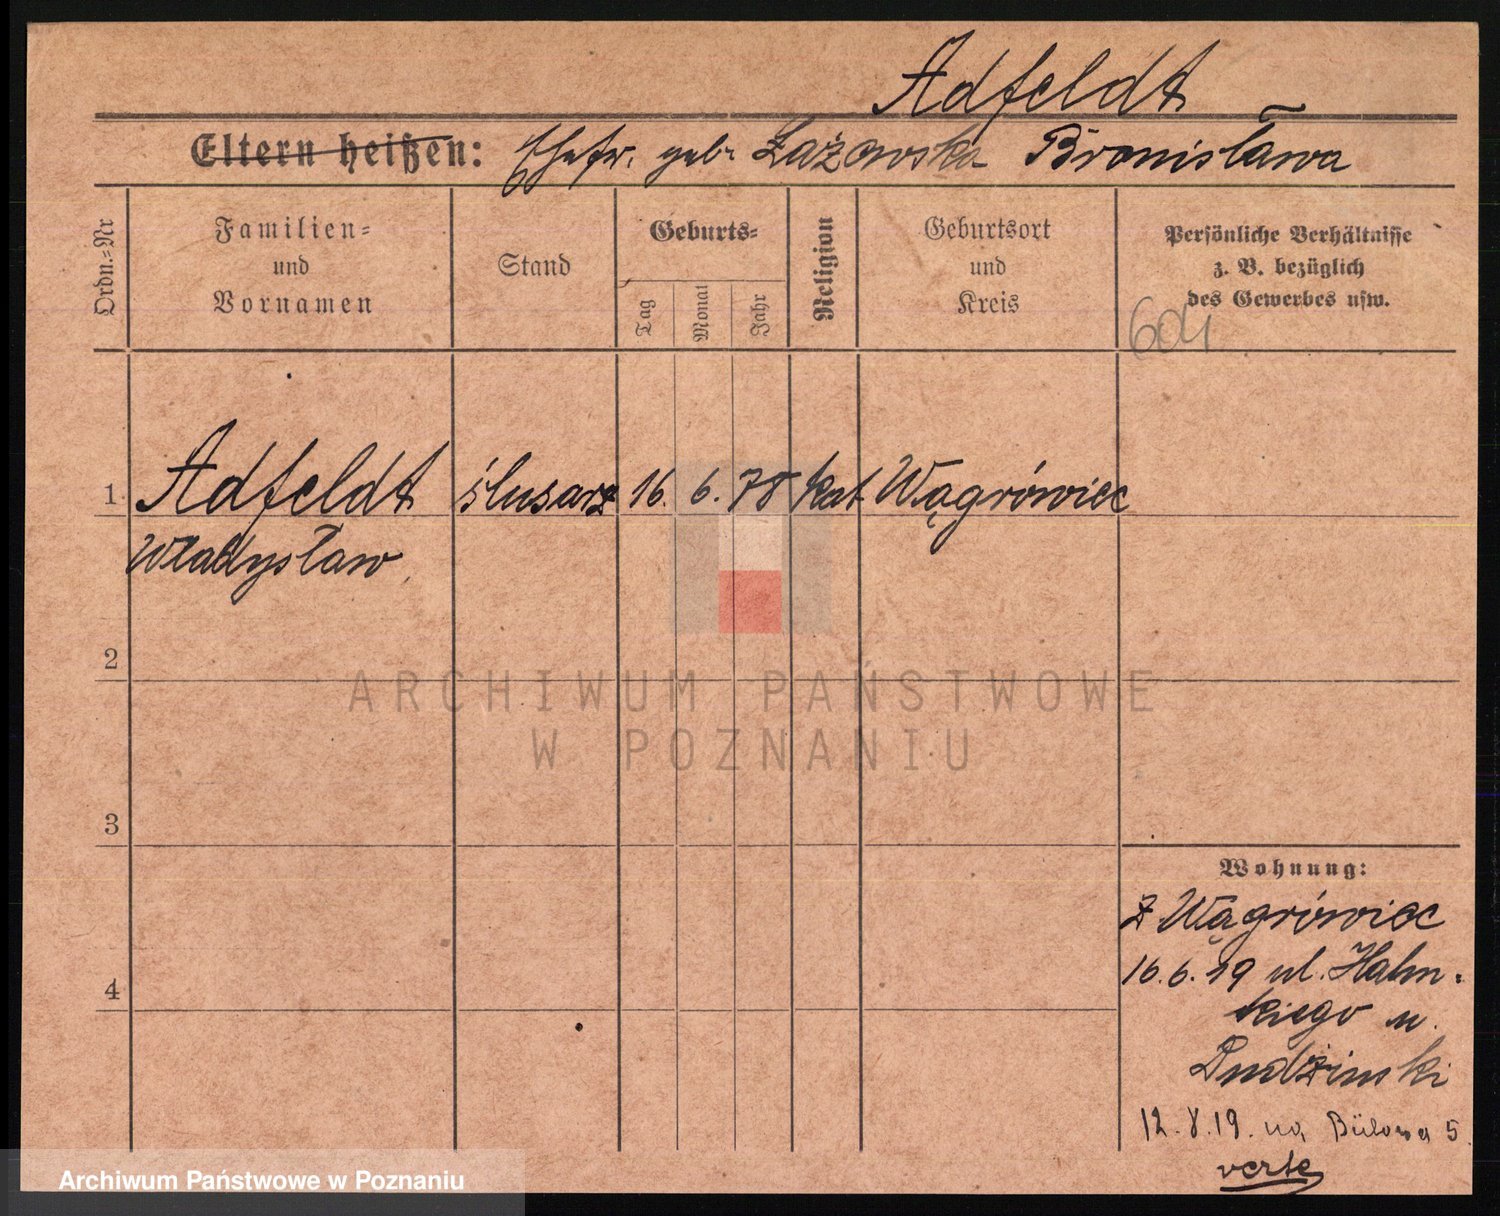 Adfeldt
Eltern heißen: Ehefr. geb. Łażowska Bronisława
Ordn.=Nr
Familien=
und
Vornamen
Stand
Geburts=
Tag
Monat
Jahr
Religion
Geburtsort
und
Kreis
Persönliche Verhältnisse
z. B. bezüglich
des Gewerbes usw.
604
1 Adfeldt ślusarz 16. 6. 78 kat Wągrówiec
Władysław
2
3
4
ARCHIWUM PAŃSTWOWE
W POZNANIU
Wohnung:
Z Wągrówiec
16.6.19 ul. Halm-
kiego u.
Dudzinski
12.8.19. na Bülowa 5.
verte
Archiwum Państwowe w Poznaniu